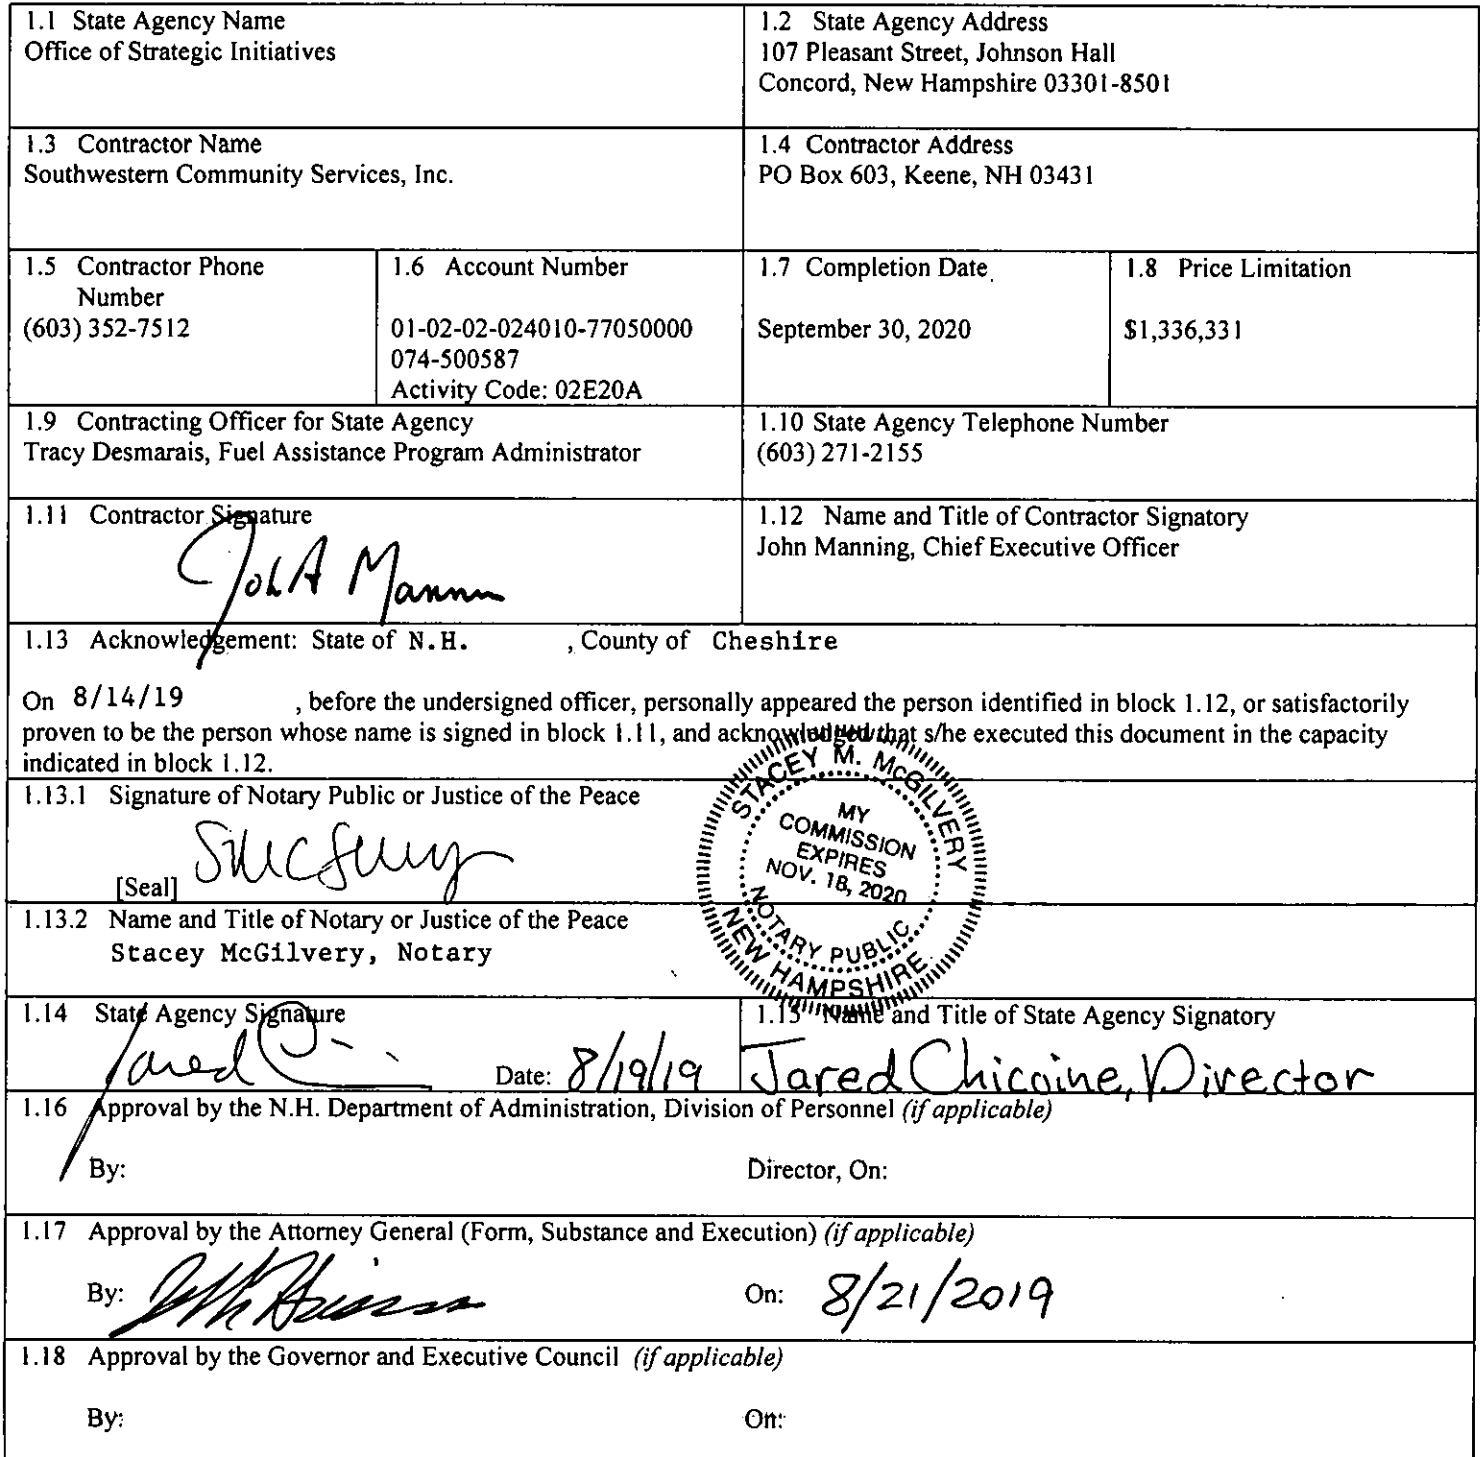 1.1 State Agency Name
Office of Strategic Initiatives
1.2 State Agency Address
107 Pleasant Street, Johnson Hall
Concord, New Hampshire 03301-8501
1.3 Contractor Name
Southwestern Community Services, Inc.
1.4 Contractor Address
PO Box 603, Keene, NH 03431
1.5 Contractor Phone
Number
(603) 352-7512
1.6 Account Number
01-02-02-024010-77050000
074-500587
Activity Code: 02E20A
1.7 Completion Date
September 30, 2020
1.8 Price Limitation
$1,336,331
1.9 Contracting Officer for State Agency
Tracy Desmarais, Fuel Assistance Program Administrator
1.10 State Agency Telephone Number
(603) 271-2155
1.11 Contractor Signature
John A Mannin
1.12 Name and Title of Contractor Signatory
John Manning, Chief Executive Officer
1.13 Acknowledgement: State of N.H. , County of Cheshire
On 8/14/19 , before the undersigned officer, personally appeared the person identified in block 1.12, or satisfactorily
proven to be the person whose name is signed in block 1.11, and acknowledged that s/he executed this document in the capacity
indicated in block 1.12.
1.13.1 Signature of Notary Public or Justice of the Peace
[Seal]
STACEY M. McGILVERY
MY
COMMISSION
EXPIRES
NOV. 18, 2020
NOTARY PUBLIC
NEW HAMPSHIRE
1.13.2 Name and Title of Notary or Justice of the Peace
Stacey McGilvery, Notary
1.14 State Agency Signature
Jared C
Date: 8/19/19
1.15 Name and Title of State Agency Signatory
Jared Chicoine, Director
1.16 Approval by the N.H. Department of Administration, Division of Personnel (if applicable)
By:
Director, On:
1.17 Approval by the Attorney General (Form, Substance and Execution) (if applicable)
By:
On: 8/21/2019
1.18 Approval by the Governor and Executive Council (if applicable)
By:
On: